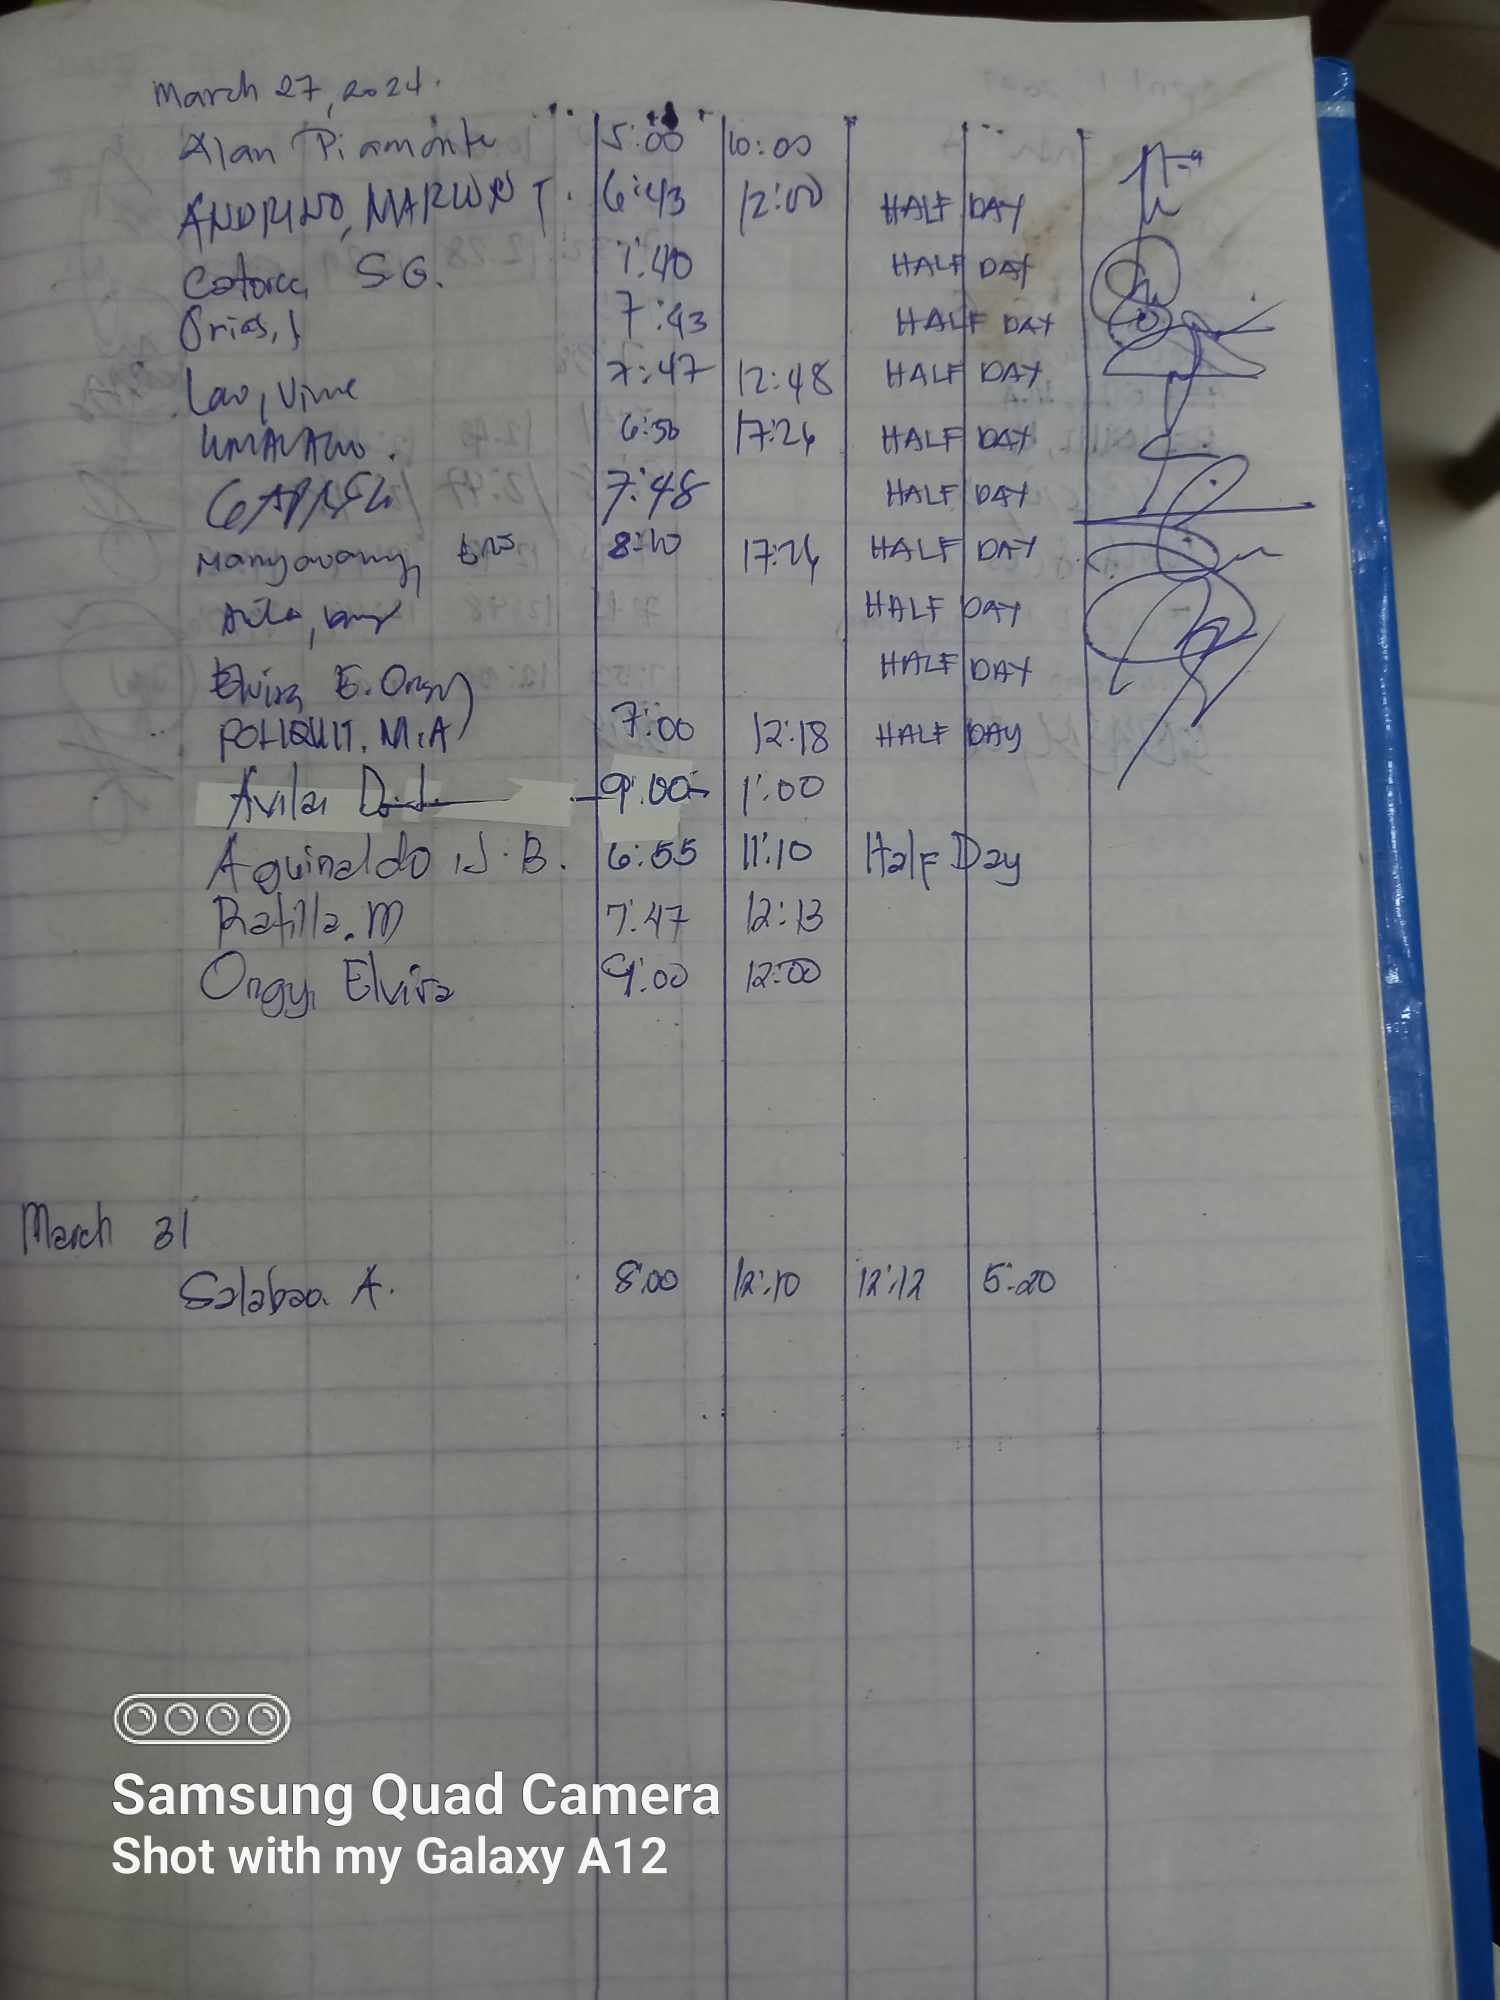 March 27, 2024.
Alan Piamonte 5:00 10:00
ANDRINO, MARLON T. 6:43 12:00 HALF DAY
S.G. 7:40 HALF DAY
Orias, J 7:43 HALF DAY
Lao, Vine 7:47 12:48 HALF DAY
17:26 HALF DAY
7:48 HALF DAY
8:10 17:26 HALF DAY
HALF DAY
Elvira E. Ongy HALF DAY
POLIQUIT, M.A 7:00 12:18 HALF DAY
Avila, D.J. 9:00 1:00
Aguinaldo, J.B. 6:55 11:10 Half Day
Ratilla. M 7:47 12:13
Ongy, Elvira 9:00 12:00
March 31
Salabao. A. 8:00 12:10 12:12 5:20
Samsung Quad Camera
Shot with my Galaxy A12